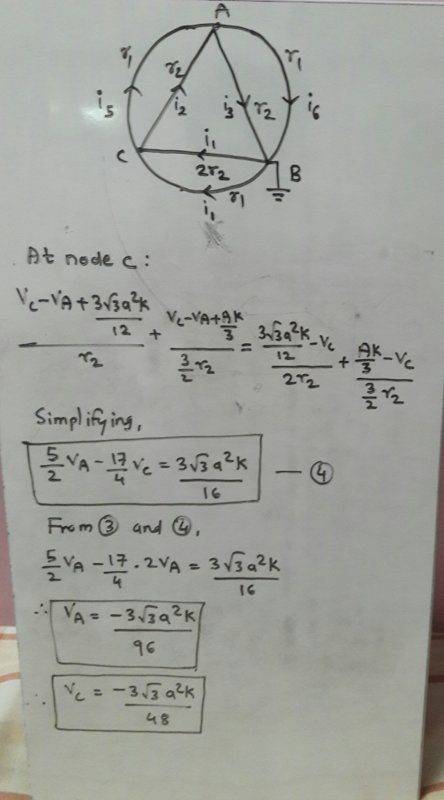 A
r₁ r₂ r₁
i₅ i₂ i₃ r₂ i₆
C i₁ B
2r₂
i₁ r₁
At node c:
(Vc-VA+3√3a²k/12)/r₂ + (Vc-VA+Ak/3)/(3/2 r₂) = (3√3a²k/12-Vc)/2r₂ + (Ak/3-Vc)/(3/2 r₂)
Simplifying,
5/2 VA - 17/4 Vc = 3√3a²k/16 — ④
From ③ and ④,
5/2 VA - 17/4 · 2VA = 3√3a²k/16
∴ VA = -3√3a²k/96
∴ Vc = -3√3a²k/48